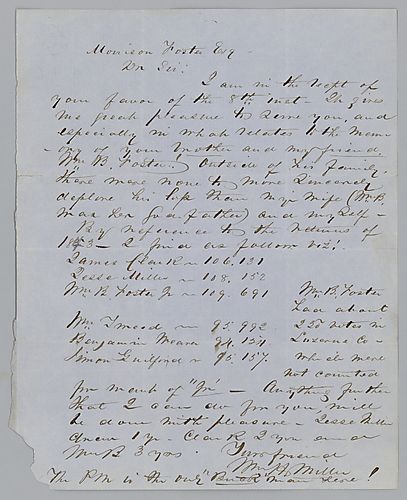 Morrison Foster Esq
Dr Sir:
I am in the rect of
your favor of the 8th inst - It gives
me great pleasure to serve you, and
especially in what relates to the mem-
ory of your brother and my friend
Wm. B. Foster. Outside of his family,
there were none to more sincerely
deplore his loss than my wife (Wm B.
was her Godfather) and myself -
By reference to the returns of
1843 - I find as follows viz:
James Clark ~ 106,131
Jesse Miller ~ 108,152
Wm B. Foster Jr ~ 109.691
Wm. B. Foster
had about
220 votes in
Luzerne Co -
which were
not counted
Wm. Tweed ~ 95.992
Benjamin Weaver 94.154
Simon Guilford ~ 95.157
for want of "Jr" - Anything further
that I can do for you, will
be done with pleasure - Jesse Miller
drew 1 yr - Clark 2 yrs and
Wm B 3 yrs.
Your friend
Wm. H. Miller
The PM is the only "Buck" man here!